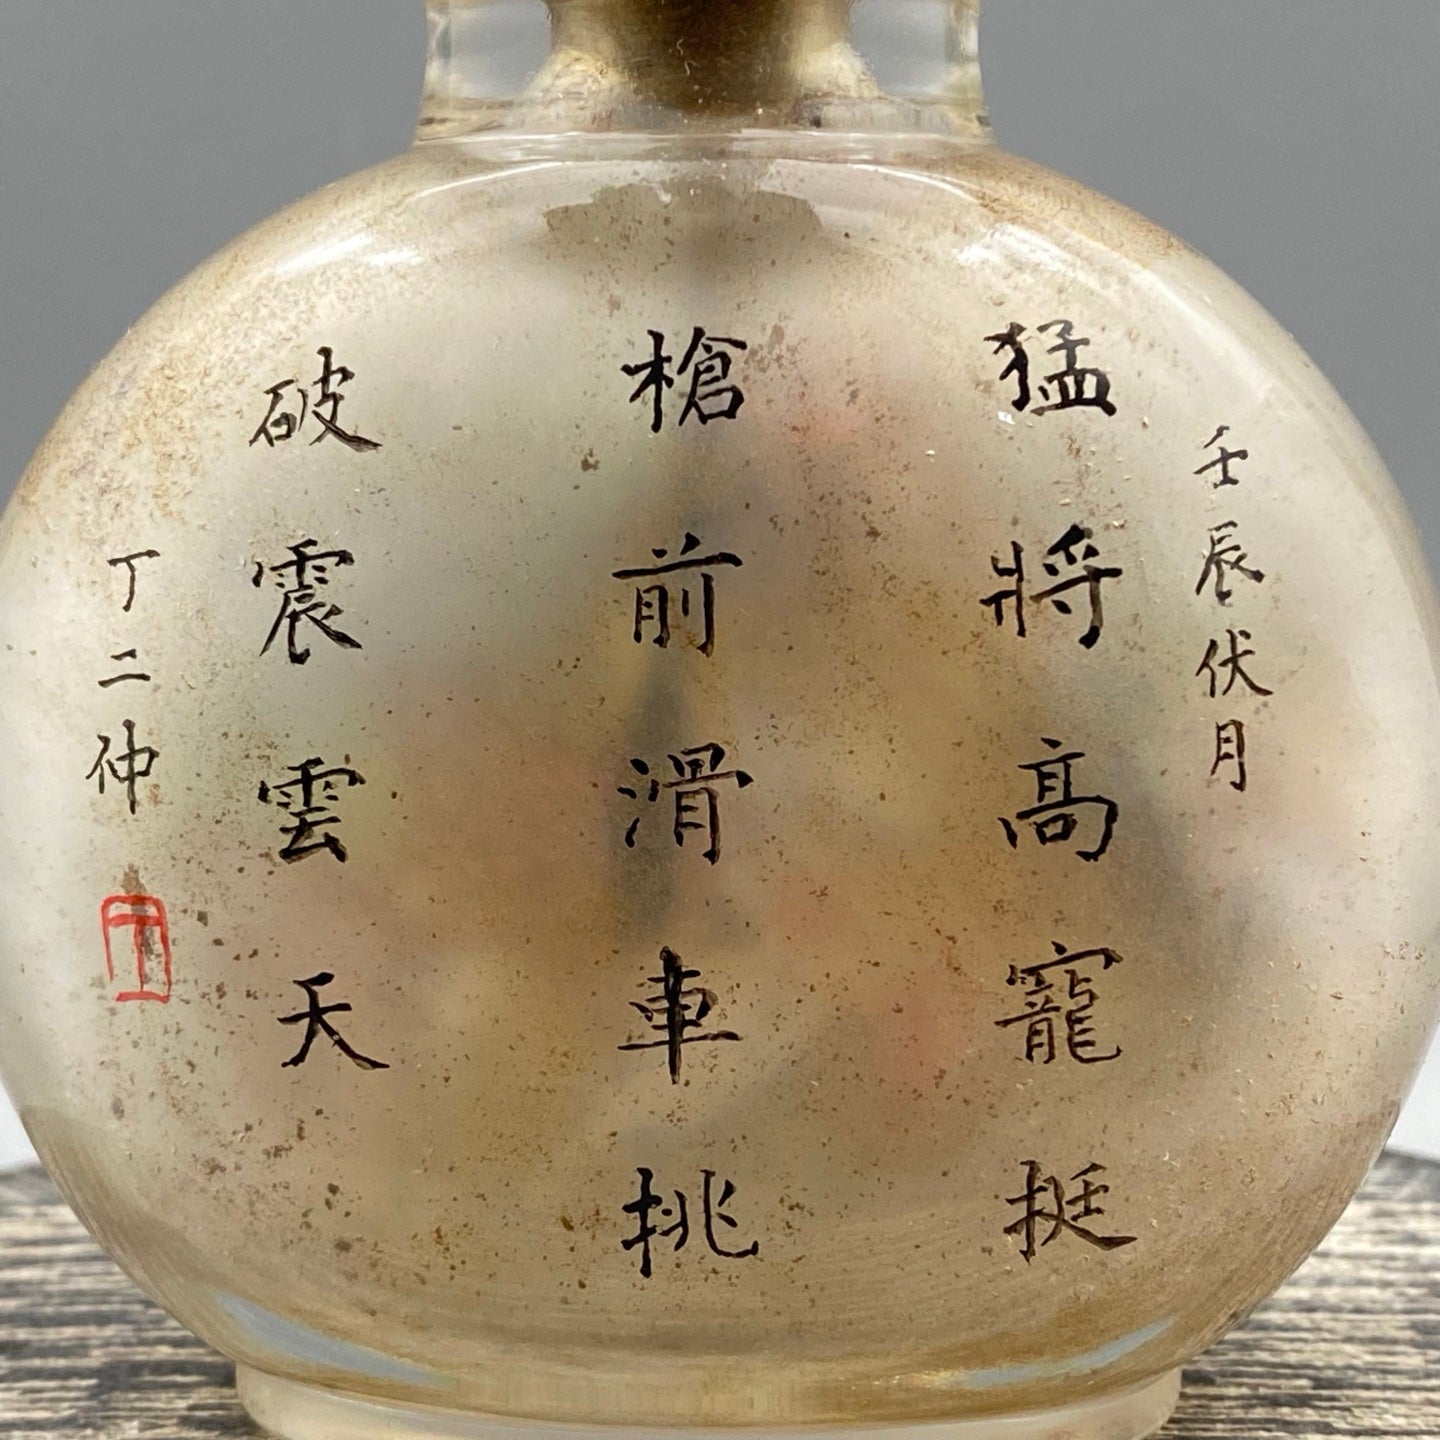 壬辰伏月
猛將高寵挺
槍前滑車挑
破震雲天
丁二仲